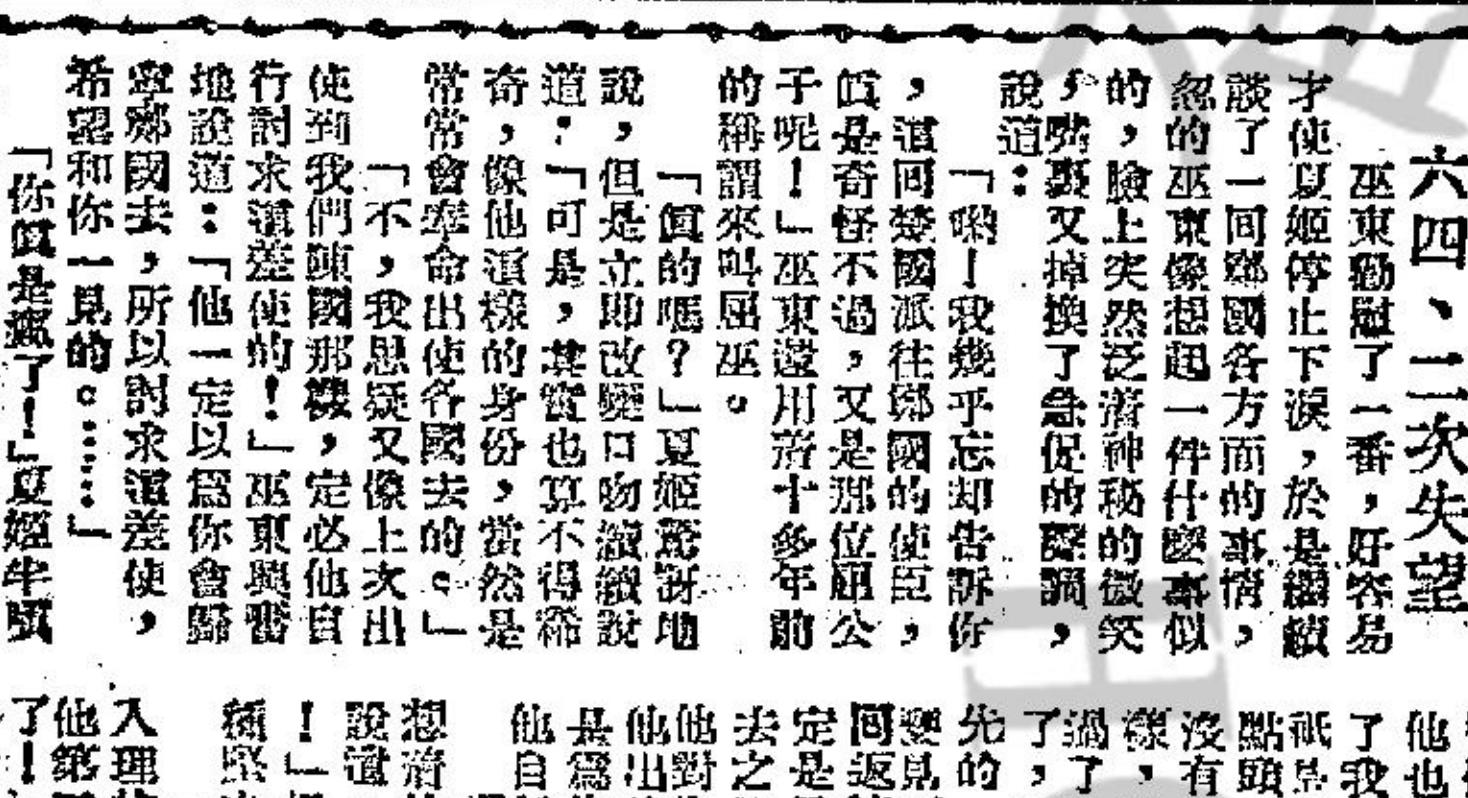 六四、二次失望
巫東勸慰了一番，好容易
才使夏姬停止下淚，於是繼續
談了一回鄭國各方面的事情，
忽的巫東像想起一件什麼事似
的，臉上突然泛着神秘的微笑
，嘴裏又掉換了急促的聲調，
說道：
「喲！我幾乎忘却告訴你
，這回楚國派往鄭國的使臣，
眞是奇怪不過，又是那位屈公
子呢！」巫東還用着十多年前
的稱謂來叫屈巫。
「眞的嗎？」夏姬驚訝地
說，但是立即改變口吻繼續說
道：「可是，其實也算不得稀
奇，像他這樣的身份，當然是
常常會奉命出使各國去的。」
「不，我思疑又像上次出
使到我們陳國那樣，定必他自
行討求這差使的！」巫東與奮
地說道：「他一定以爲你會歸
寧鄭國去，所以討求這差使，
希望和你一見的。……」
「你眞是瘋了！」夏姬半嗔
他也
了我
祇是
點頭
沒有
樣，
過了
了，
先的
要見
回返
定是
去之
他對
他出
是爲
他自
想着
說道
！」
入理
他第
了！